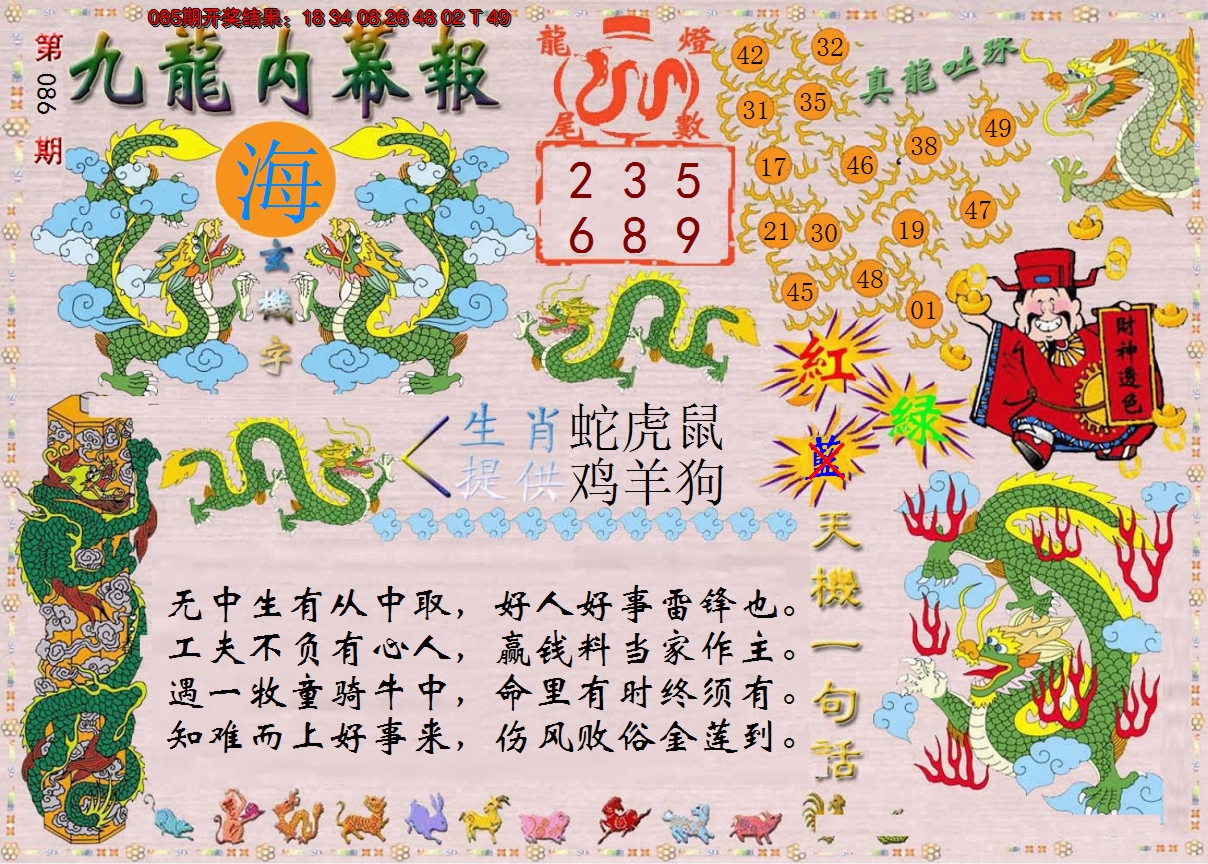 085期开奖结果：18 34 08 26 48 02 T 49
第086期
九龍内幕報
海
玄機字
龍燈尾數
2 3 5
6 8 9
真龍吐珠
42 32
31 35
17 46 38 49
21 30 19 47
45 48 01
財神透色
紅
綠
藍
生肖提供
蛇虎鼠
鸡羊狗
天機一句話
无中生有从中取，好人好事雷锋也。
工夫不负有心人，赢钱料当家作主。
遇一牧童骑牛中，命里有时终须有。
知难而上好事来，伤风败俗金莲到。